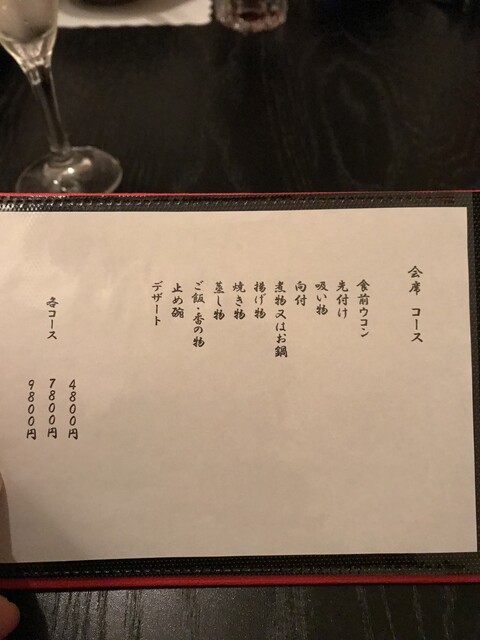 会席 コース
食前ウコン
先付け
吸い物
向付
煮物又はお鍋
揚げ物
焼き物
蒸し物
ご飯・香の物
止め碗
デザート
各コース
4800円
7800円
9800円